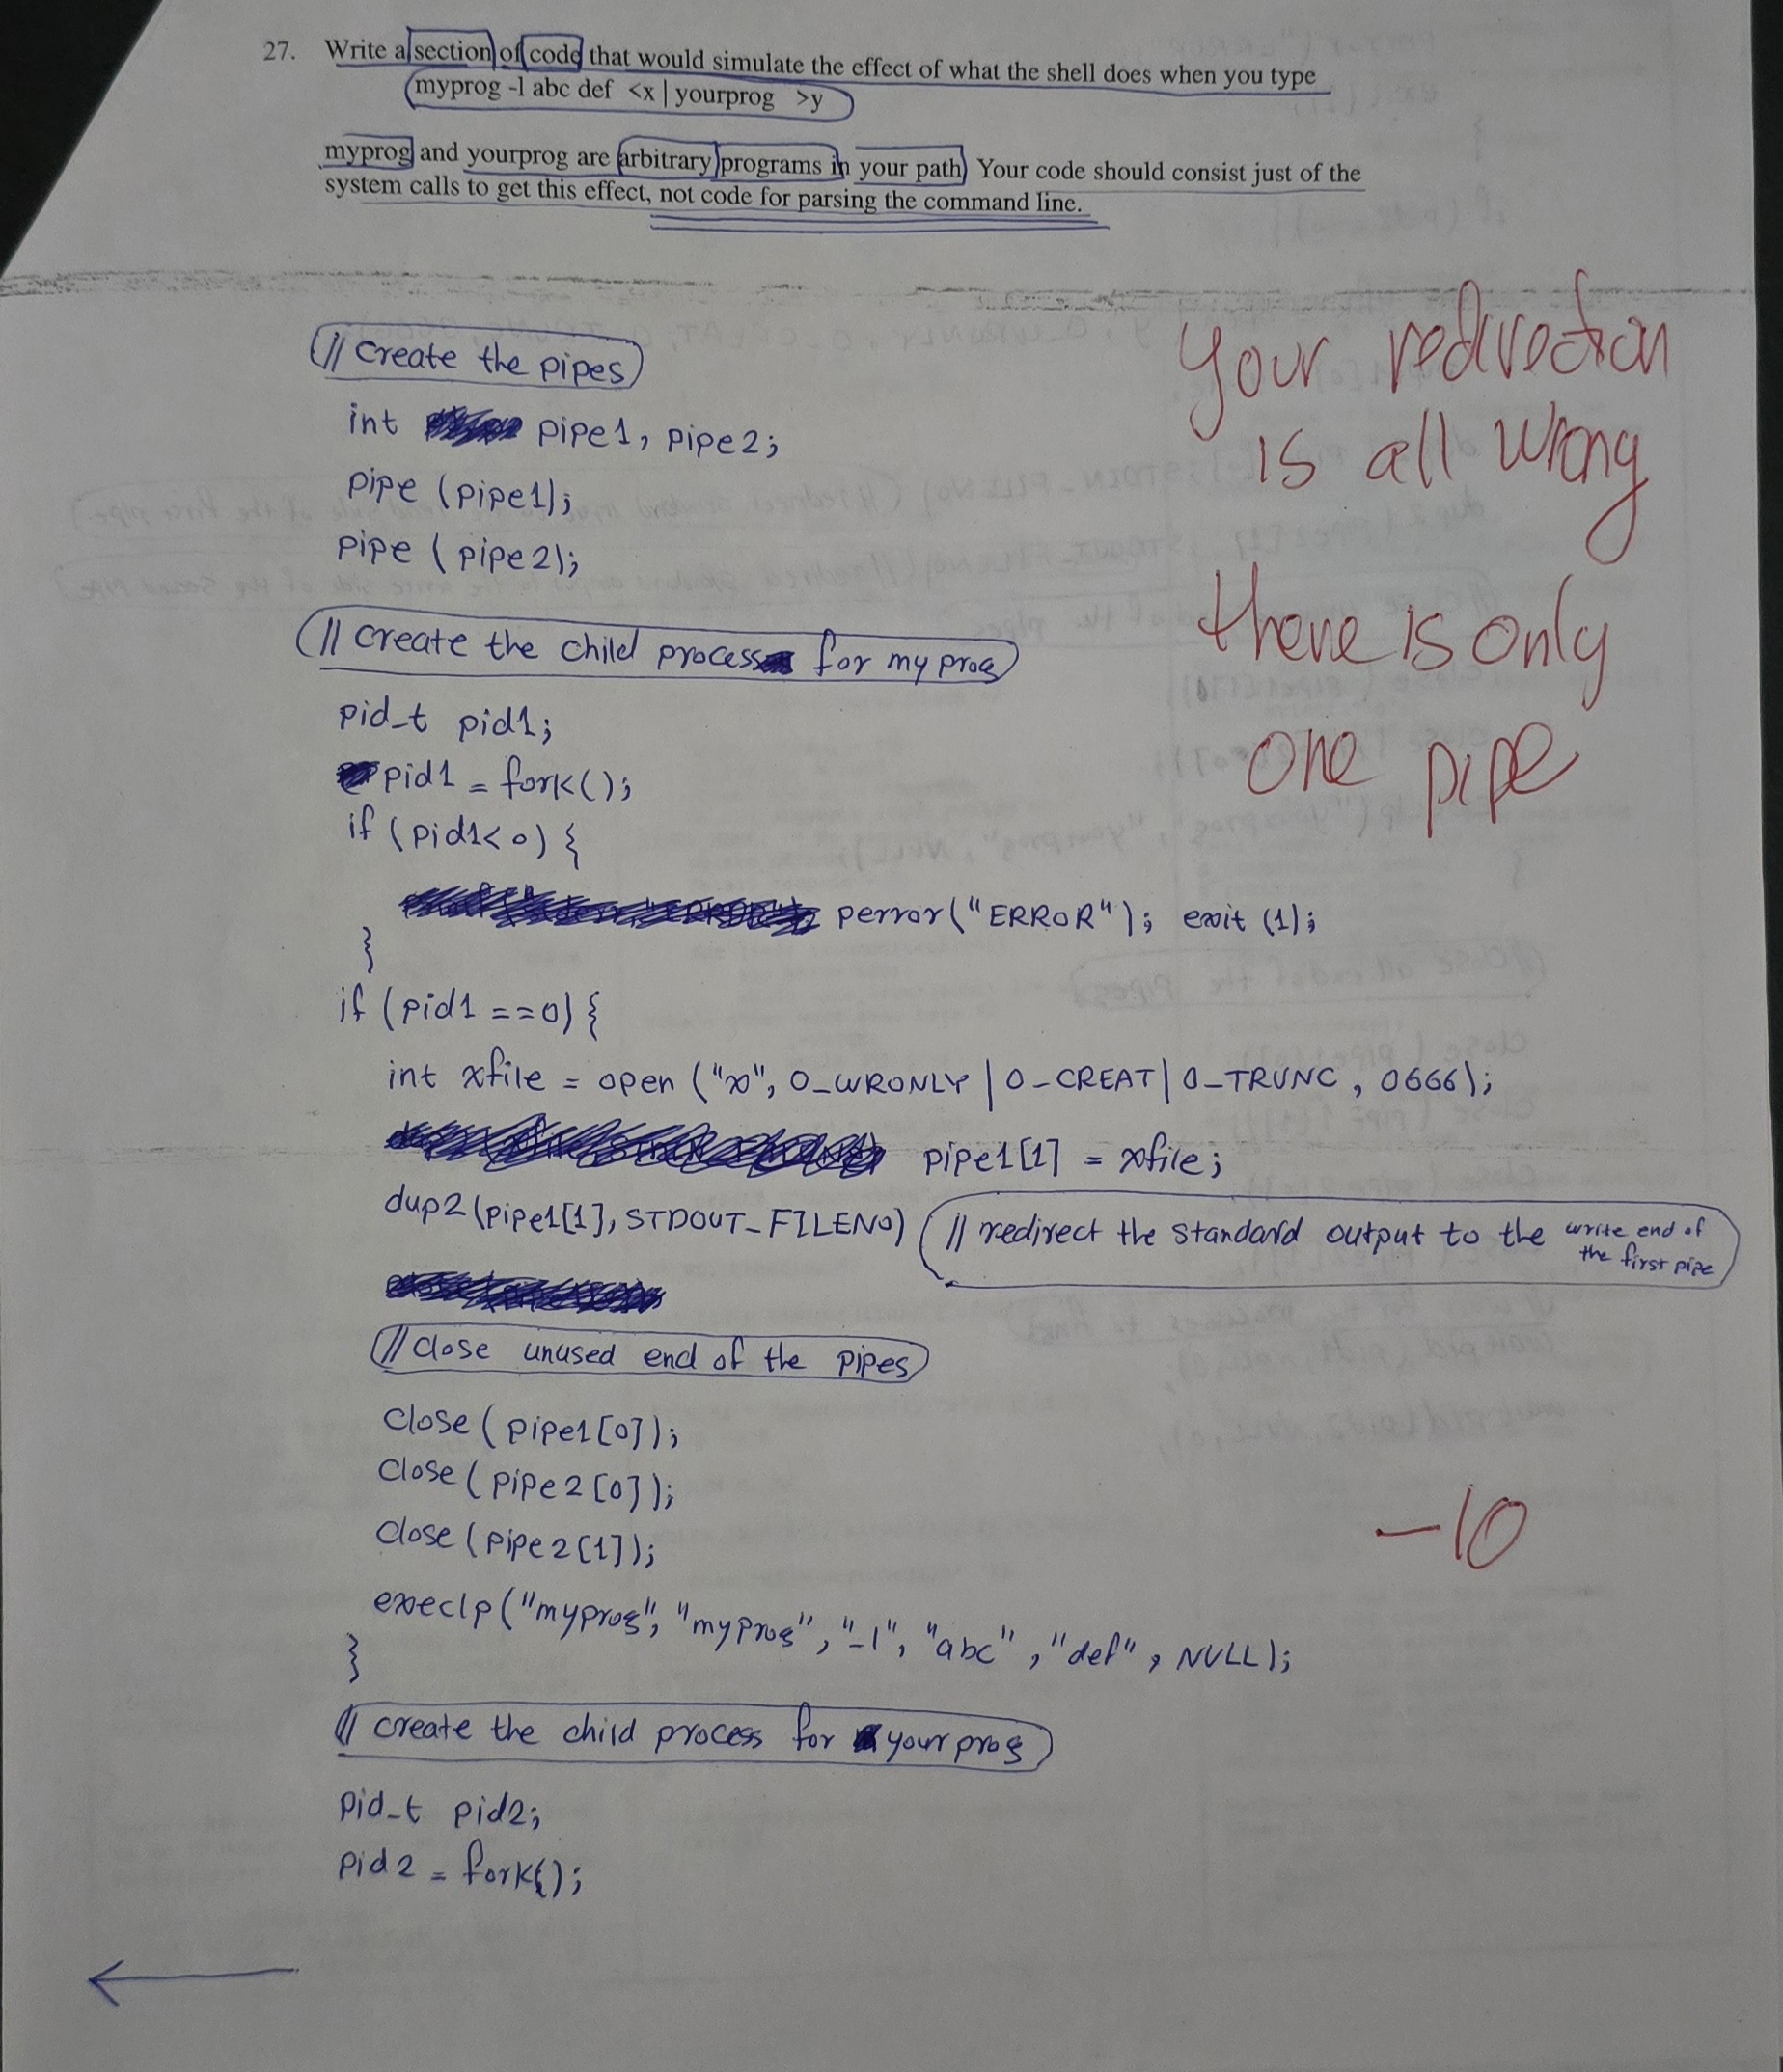 27. Write a section of code that would simulate the effect of what the shell does when you type
myprog -l abc def <x | yourprog >y
myprog and yourprog are arbitrary programs in your path. Your code should consist just of the
system calls to get this effect, not code for parsing the command line.
Your redirection
is all wrong
there is only
one pipe
// create the pipes
int pipe1, pipe2;
pipe (pipe1);
pipe (pipe2);
// create the child process for myprog
pid_t pid1;
pid1 = fork();
if (pid1<0) {
perror("ERROR"); exit (1);
}
if (pid1 ==0) {
int xfile = open ("x", O_WRONLY | O_CREAT | O_TRUNC, 0666);
pipe1[1] = xfile;
dup2(pipe1[1], STDOUT_FILENO) // redirect the standard output to the write end of
the first pipe
// Close unused end of the pipes
close (pipe1[0]);
close (pipe2[0]);
close (pipe2[1]);
-10
execlp("myprog", "myprog", "-l", "abc", "def", NULL);
}
// create the child process for yourprog
pid_t pid2;
pid2 = fork();